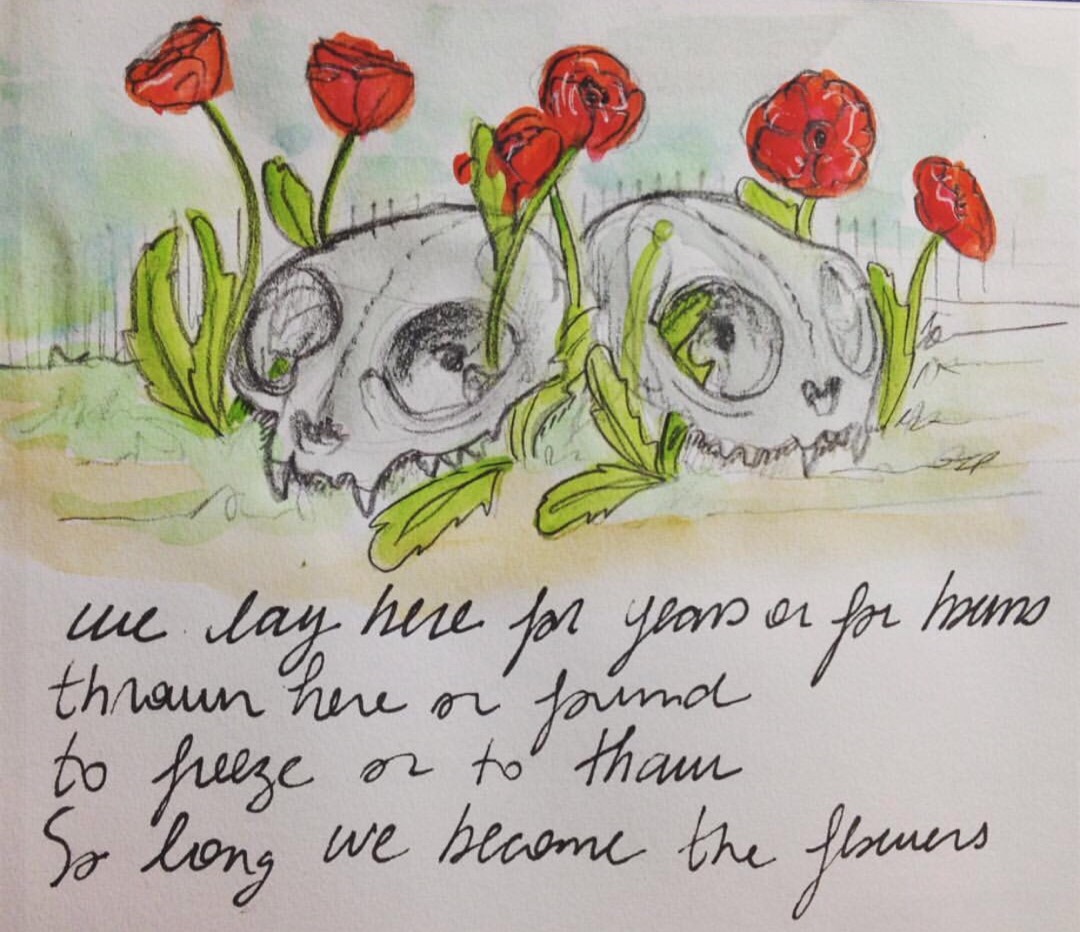 we lay here for years or for hours
thrown here or found
to freeze or to thaw
So long we become the flowers